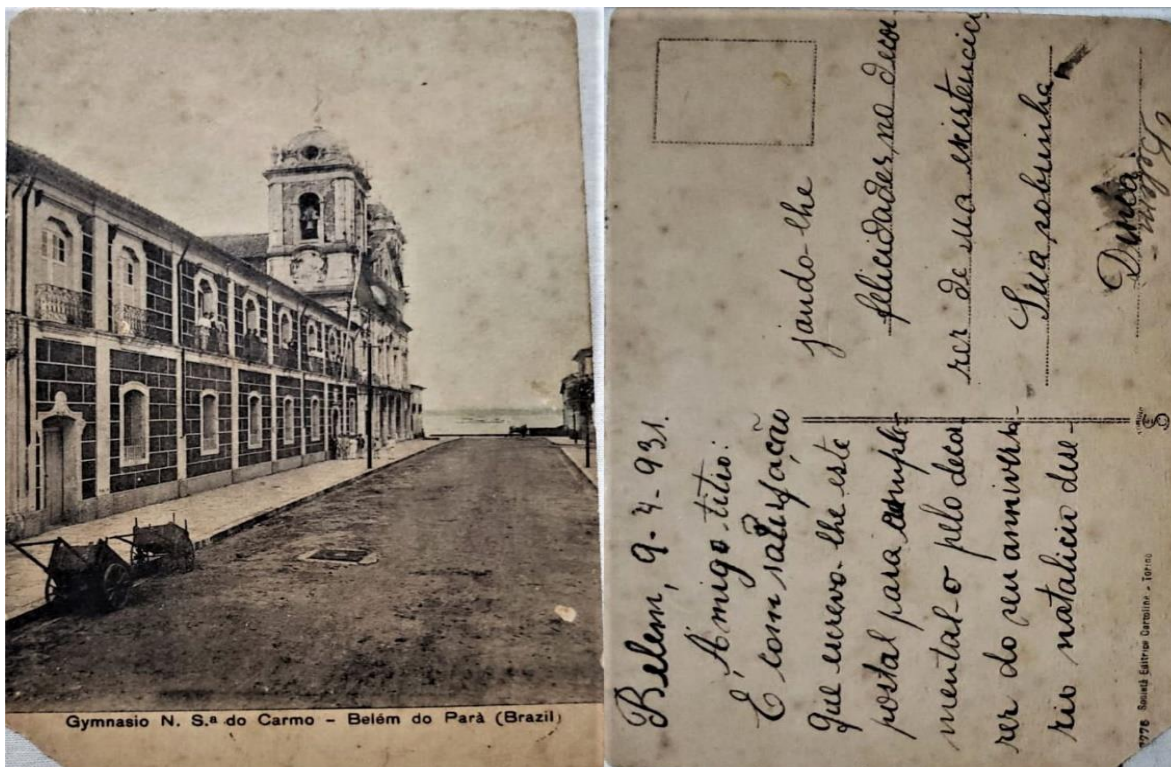 Gymnasio N. S.ª do Carmo - Belém do Parà (Brazil)
Belem, 9-4-931.
Amigo titio:
É com satisfação
que escrevo-lhe este
postal para cumpri-
mental-o pelo decor
rer do seu anniversa-
rio natalicio dese-
jando-lhe
felicidades no decor
rer de sua existencia
Sua sobrinha
7776 Società Editrice Cartoline - Torino